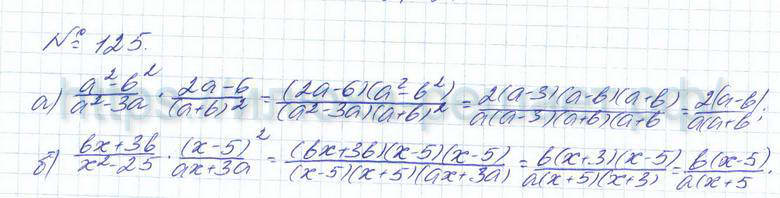 № 125.
а) (a²-b²)/(a²-3a) · (2a-6)/(a+b)² = ((2a-6)(a²-b²))/((a²-3a)(a+b)²) = (2(a-3)(a-b)(a+b))/(a(a-3)(a+b)(a+b) = (2(a-b)/(a(a+b;
б) (bx+3b)/(x²-25) · (x-5)²/(ax+3a) = ((bx+3b)(x-5)(x-5))/((x-5)(x+5)(ax+3a)) = (b(x+3)(x-5))/(a(x+5)(x+3)) = (b(x-5)/(a(x+5.